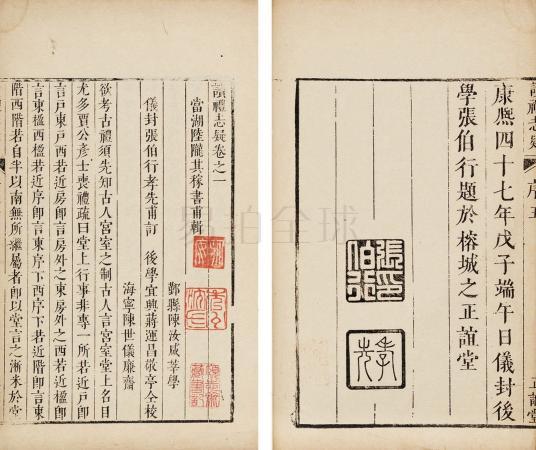 讀禮志疑
序五
正誼堂
康熙四十七年戊子端午日儀封後
學張伯行題於榕城之正誼堂
張伯行印
孝先
讀禮志疑卷之一
當湖陸隴其稼書甫輯
鄞縣陳汝咸莘學
儀封張伯行孝先甫訂 後學宜興蔣運昌敬亭仝校
海寧陳世儀廉齋
欲考古禮須先知古人宮室之制古人言宮室堂上名目
尤多賈公彥士喪禮疏曰堂上行事非專一所若近戶即
言戶東戶西若近房即言房外之東房外之西若近楹即
言東楹西楹若近序即言東序下西序下若近階即言東
階西階若自半以南無所繼屬者即以堂言之淅米於堂
易拍全球